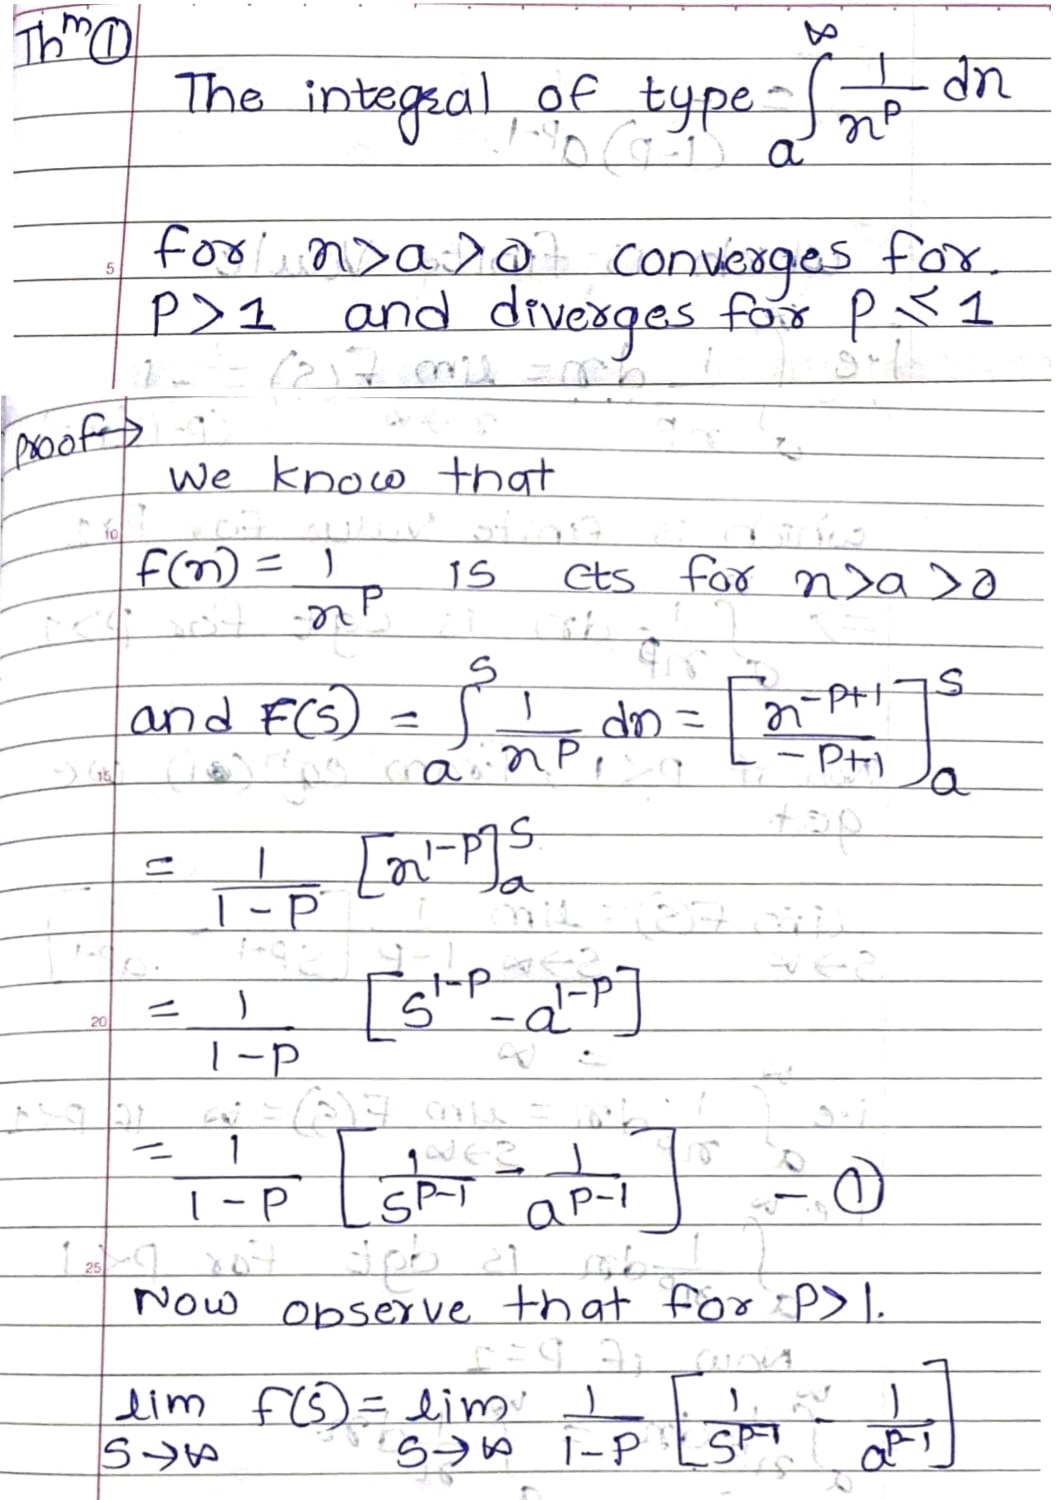 Thm ①
The integral of type - ∫_a^∞ 1/x^p dx
for x>a>0 converges for.
P>1 and diverges for P ≤ 1
proof →
We know that
f(x) = 1/x^p is cts for x>a>0
and F(s) = ∫_a^s 1/x^p dx = [x^(-p+1)/(-p+1)]_a^s
= 1/(1-p) [x^(1-p)]_a^s
= 1/(1-p) [s^(1-p) - a^(1-p)]
= 1/(1-p) [1/s^(p-1) - 1/a^(p-1)] - ①
Now observe that for P>1.
lim_(s→∞) f(s) = lim_(s→∞) 1/(1-p) [1/s^(p-1) - 1/a^(p-1)]
5
10
15
20
25